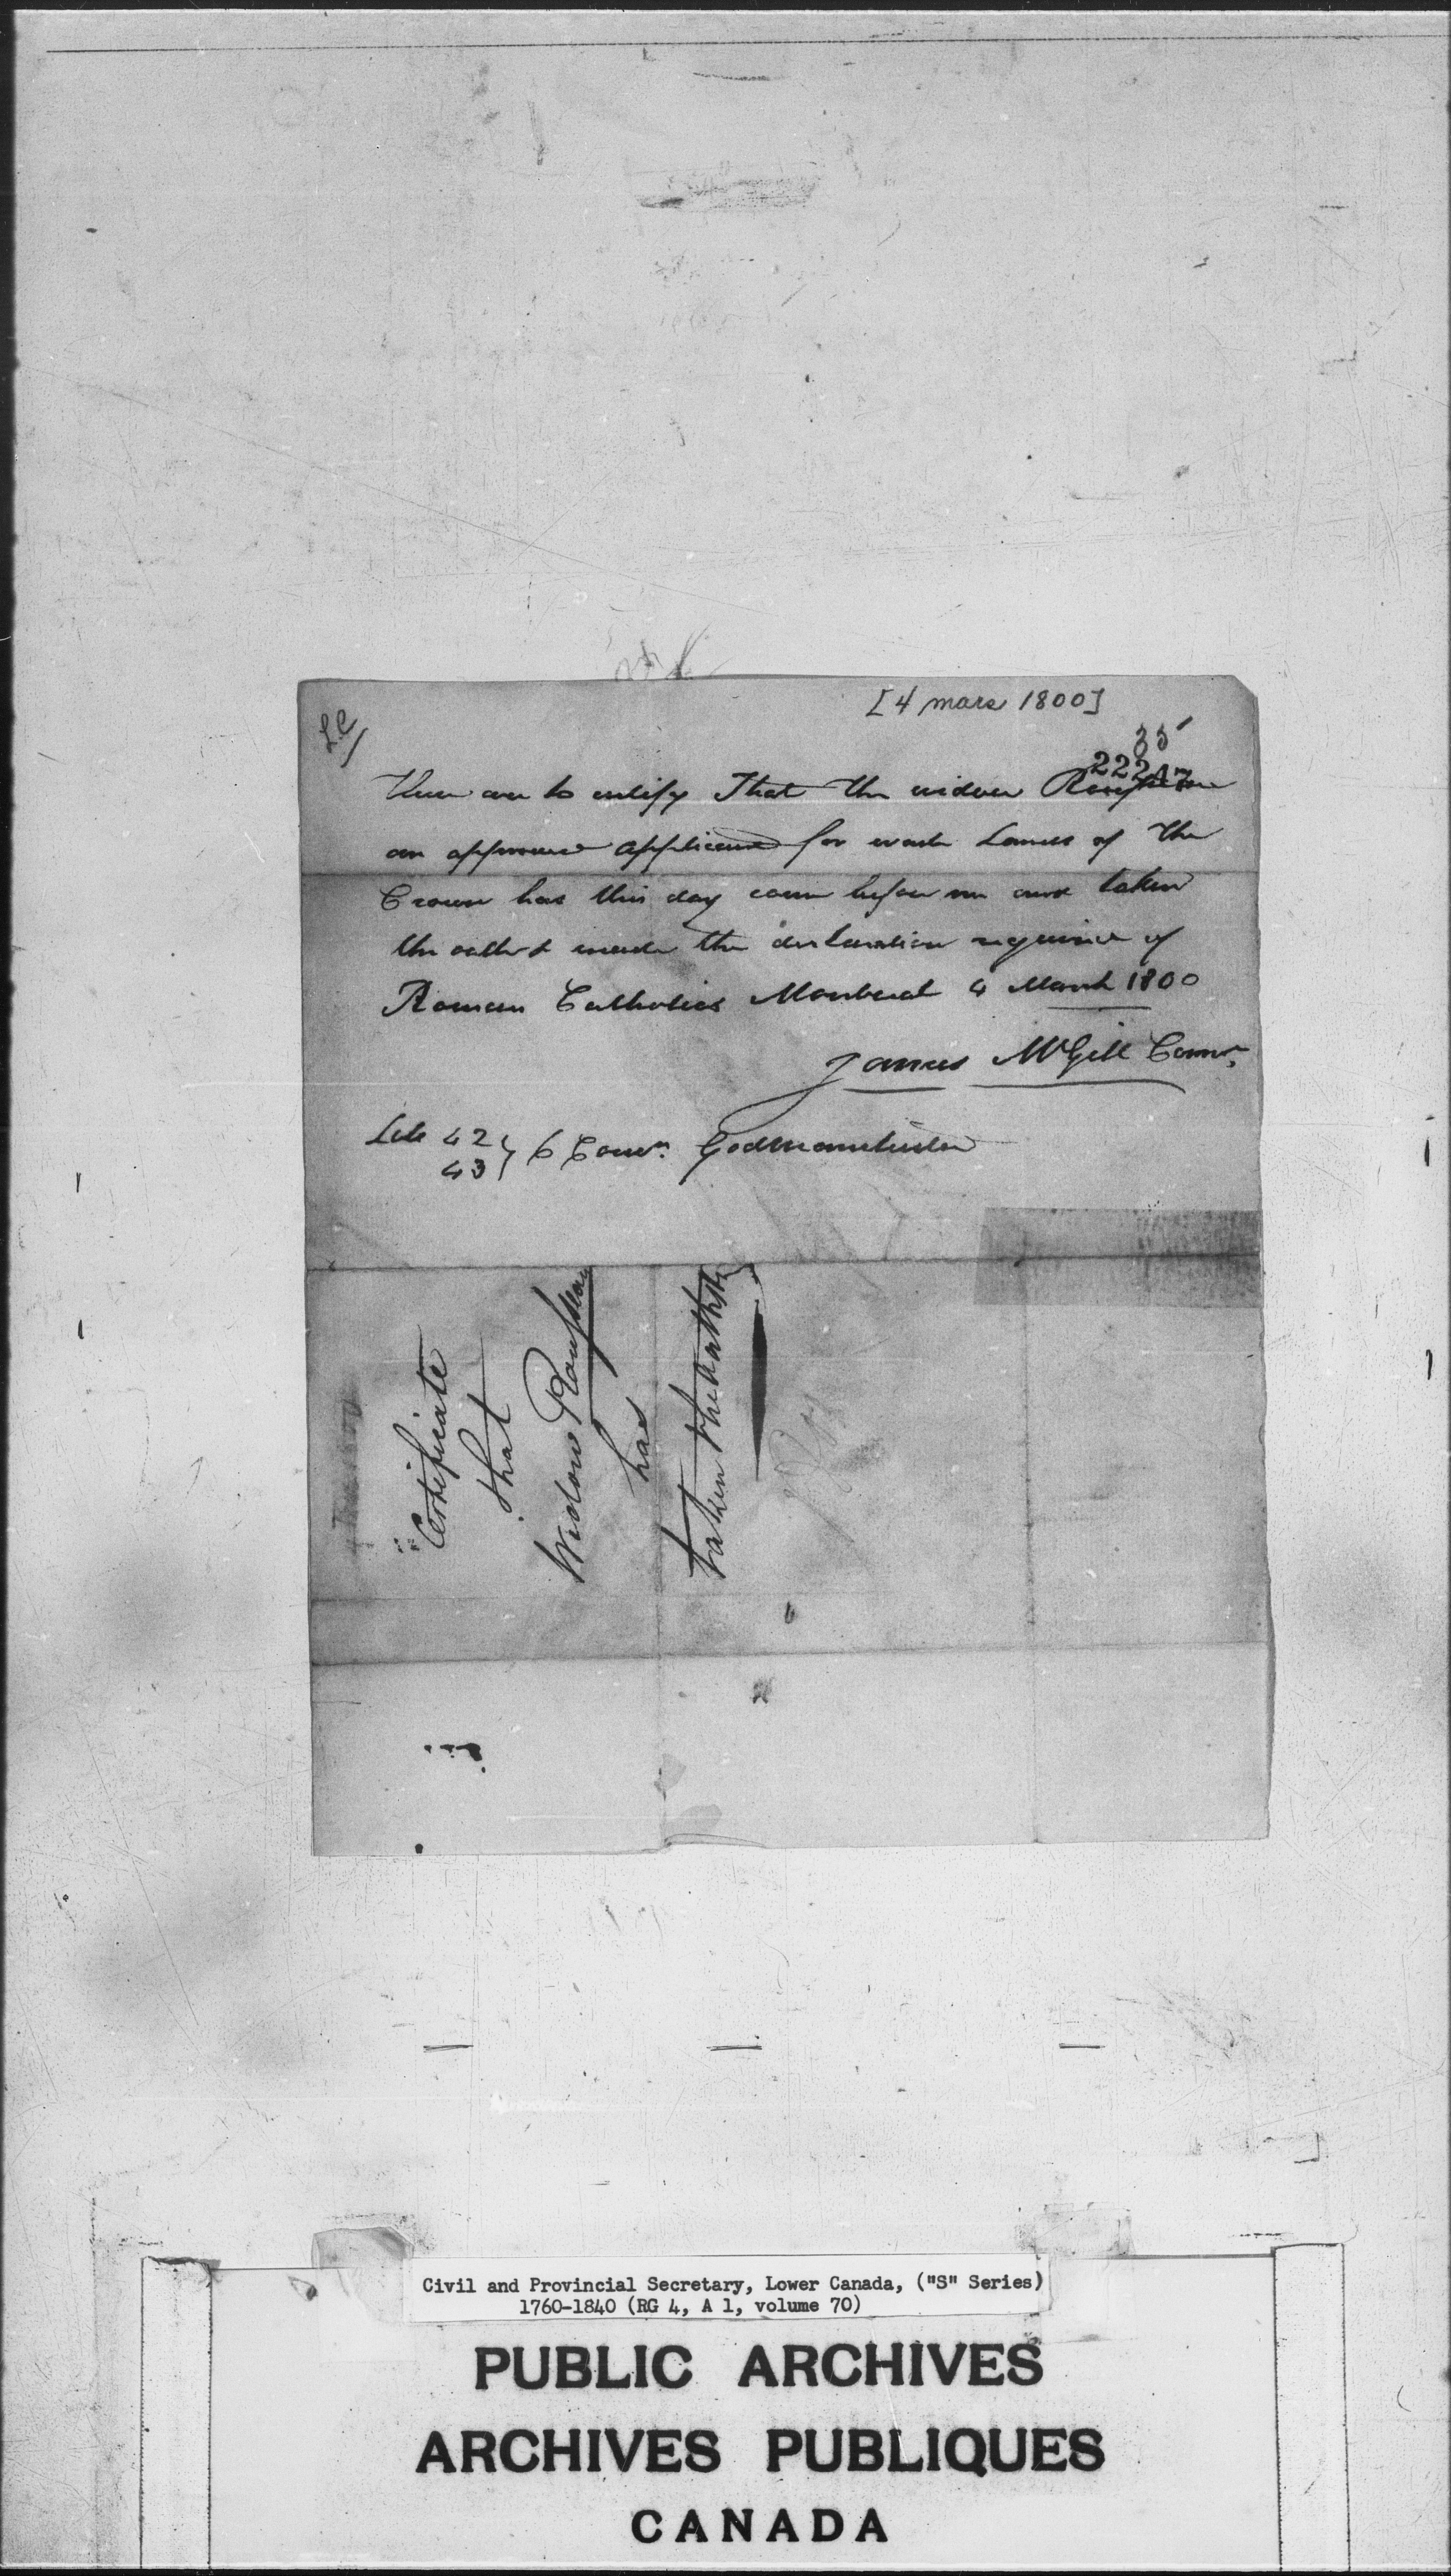 [4 mars 1800]
L.C
35
22247
These are to certify That the widow Rousseau
an approved applicant for waste Lands of the
Crown has this day come before me and taken
the oaths & made the declaration required of
Roman Catholics Montreal 4 March 1800
James McGill Comr.
Lots 42
43 } 6 Conn. Godmanchester
Certificate
that
Widow Rousseau
has
taken the oaths &c
Civil and Provincial Secretary, Lower Canada, ("S" Series)
1760-1840 (RG 4, A 1, volume 70)
PUBLIC ARCHIVES
ARCHIVES PUBLIQUES
CANADA